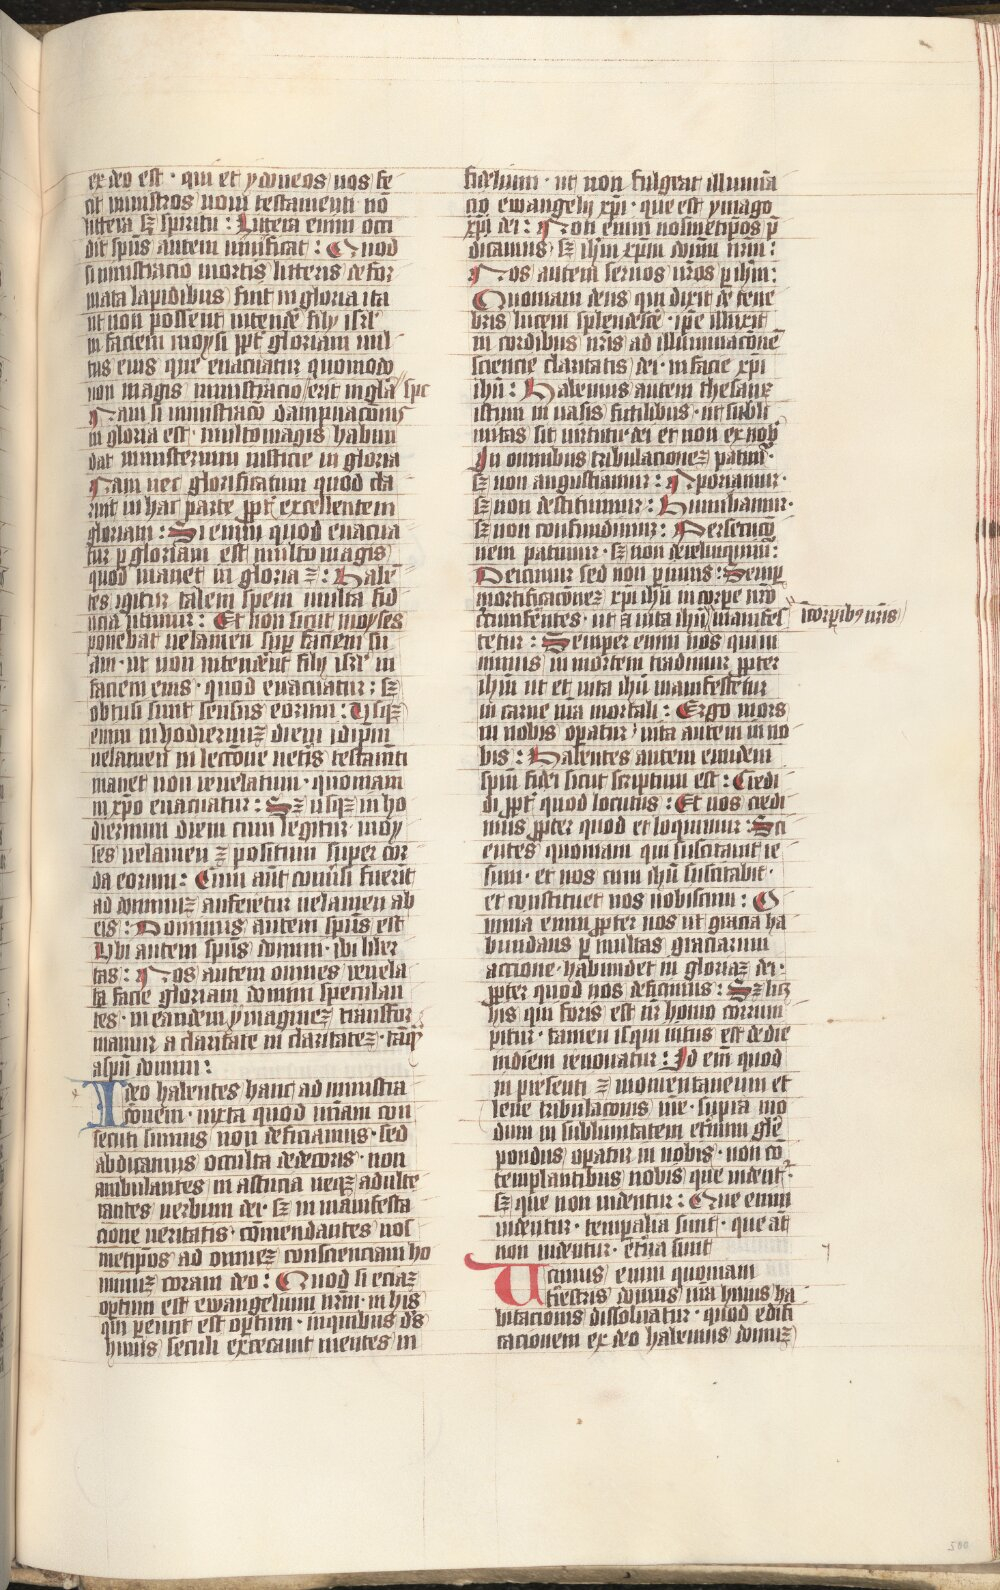 ex deo est · qui et ydoneos nos fe
cit ministros noui testamenti nō
littera sꝫ spiritu : Littera enim occi
dit spūs autem uiuificat : Quod
si ministracio mortis litteris defor
mata lapidibus fuit in gloria ita
ut non possent intendē filij isrl̄
in faciem moysi ꝓpt̄ gloriam uul
tus eius que euacuatur quomodo
non magis ministracio erit in glā spc
Nam si ministracō dampnacōnis
in gloria est · multomagis habun
dat ministerium iusticie in gloria
Nam nec glorificatum quod cla
ruit in hac parte ꝓpt̄ excellentem
gloriam : Si enim quod euacua
tur ꝑ gloriam est multo magis
quod manet in gloria ē : Habē
tes igitur talem spem multa fid
ucia utimur : Et non sicut moyses
ponebat uelamen sup̄ faciem su
am · ut non intendēnt filij isrl̄ in
faciem eius · quod euacuatur : sꝫ
obtusi sunt sensus eorum : Usqꝫ
enim in hodiernuꝫ diem idipm̄
uelamen in lectōne uetis testamti
manet non reuelatum · quoniam
in xp̄o euacuatur : Sꝫ usqꝫ in ho
diernum diem cum legitur moy
ses uelamen ē positum super cor
da eorum : Cum aūt conūsi fuerīt
ad dominuꝫ auferetur uelamen ab
eis : Dominus autem spūs est
Ubi autem spūs domini · ibi liber
tas : Nos autem omnes reuela
ta facie gloriam domini speculan
tes · in eandem ymagineꝫ transfor
mamur a claritate in claritateꝫ · tāqꝫ
aspū domini :
Ideo habentes hanc ad ministra
cōnem · iuxta quod miam con
secuti sumus non deficiamus · sed
abdicamus occulta dedecoris · non
ambulantes in astucia neqꝫ adulte
rantes uerbum dei · sꝫ in manifesta
cione ueritatis · cōmendantes nos
metipōs ad omneꝫ conscienciam ho
minuꝫ coram deo : Quod si eciaꝫ
optum est ewangelium nr̄m · in his
qui pereūt est optum · in quibus ds̄
huius seculi excecauit mentes in
fidelium · ut non fulgeat illumīa
cio ewangelij xp̄i · que est ymago
xp̄i dei : Non enim nosmetipōs p̄
dicamus · sꝫ ihm̄ xp̄m domīū nr̄m :
Nos autem seruos uros ꝑ ihm̄ :
Quoniam deus qui dixit de tene
bris lucem splendescē · ipē illuxit
in cordibus nr̄is ad illuminacōnē
sciencie claritatis dei · in facie xp̄i
ihū : Habemus autem thesauꝝ
istum in uasis fictilibus · ut subli
mitas sit uirtutis dei et non ex nob̄
In omnibus tribulacioneꝫ patim̄ ·
sꝫ non angustiamur : Aporiamur ·
sꝫ non destituimur : Humiliamur ·
sꝫ non confundimur : Persecucō
nem patimur · sꝫ non derelinquim̄ :
Deicimur sed non ꝑimus : Semꝑ
mortificacōneꝫ xp̄i ihū in corpe nr̄o
circumferentes · ut et uita ihū manifes
incorpibꝰ nr̄is
tetur : Semper enim nos qui ui
uimus in mortem tradimur ꝓpter
ihū ut et uita ihū manifestetur
in carne nr̄a mortali : Ergo mors
in nobis opatur · uita autem in uo
bis : Habentes autem eundem
spm̄ fidei sicut scriptum est : Credi
di ꝓpt̄ quod locutus : Et nos credi
mus ꝓpter quod et loquimur : Sci
entes quoniam qui suscitauit ie
sum · et nos cum ihū suscitabit ·
et constituet nos uobiscum : O
mnia enim ꝓpter uos ut gracia ha
bundans ꝑ multas graciarum
accione · habundet in gloriaꝫ dei ·
ꝓpter quod nos deficimus : Sꝫ licꝫ
his qui foris est nr̄ homo corrum
pitur · tamen is qui intus est de die
in diem renouatur : Id em̄ quod
in presenti ē momentaneum et
leue tribulacōnis nr̄e · supra mo
dum in sublimitatem etnum glē
pondus opatur in nobis · non cō
templantibus nobis que uident̄ ·
sꝫ que non uidentur : Que enim
uidentur · temporalia sunt · que at̄
non uidentur · etna sunt
Scimus enim quoniam
tr̄estris domus nr̄a huius ha
bitacionis dissoluatur · quod edifi
cacionem ex deo habemus domuꝫ